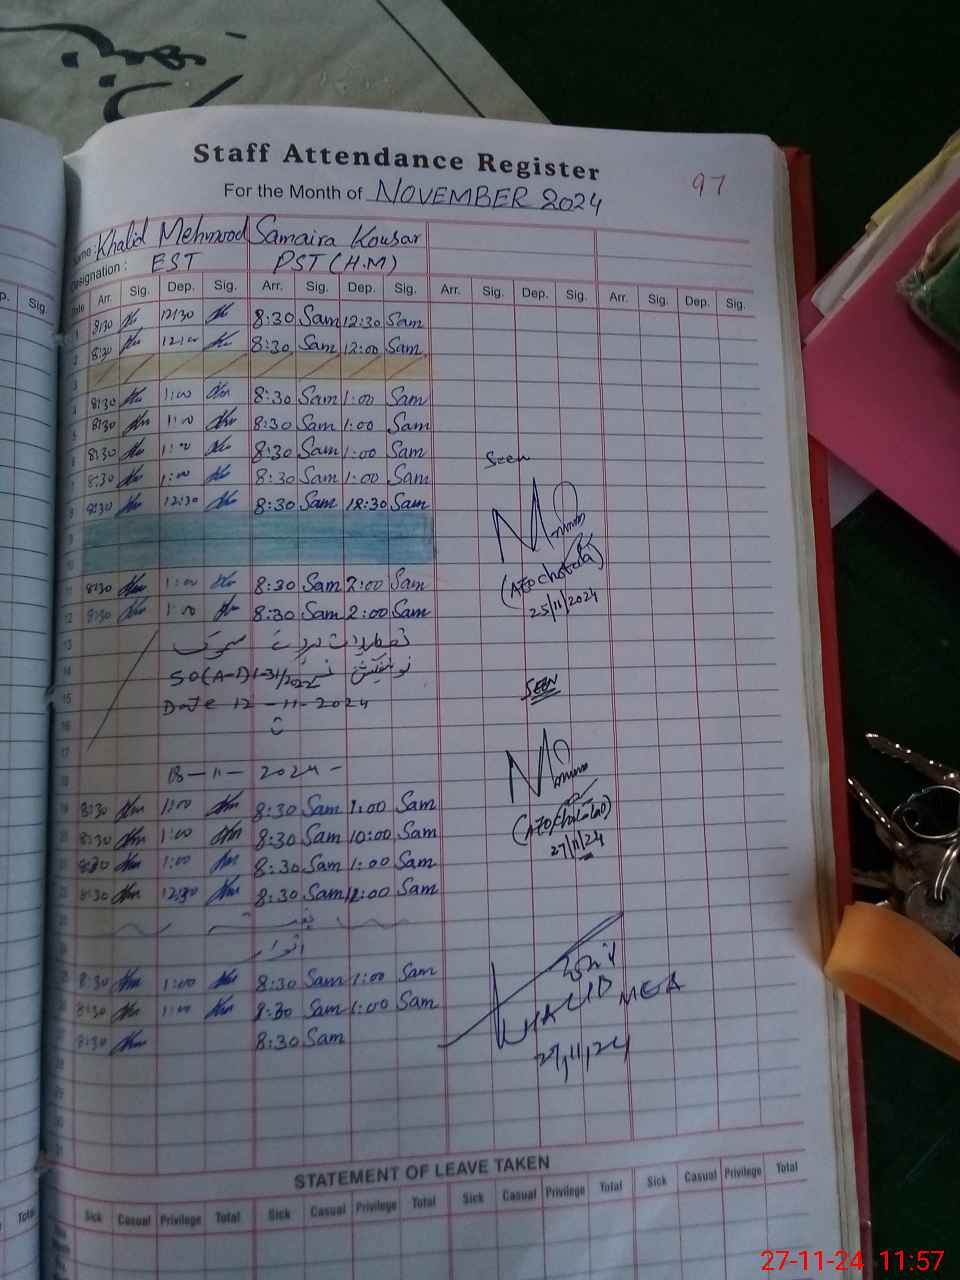 Staff Attendance Register
97
For the Month of NOVEMBER 2024
Name: Khalid Mehmood Samaira Kousar
Designation: EST PST (H.M)
p. Sig. Date Arr. Sig. Dep. Sig. Arr. Sig. Dep. Sig. Arr. Sig. Dep. Sig. Arr. Sig. Dep. Sig.
1 8:30 12:30 8:30 Sam 12:30 Sam
2 8:30 12:00 8:30 Sam 12:00 Sam
3
4 8:30 1:00 8:30 Sam 1:00 Sam
5 8:30 1:00 8:30 Sam 1:00 Sam
6 8:30 1:00 8:30 Sam 1:00 Sam
Seen
7 8:30 1:00 8:30 Sam 1:00 Sam
8 8:30 12:30 8:30 Sam 12:30 Sam
9
10
11 8:30 1:00 8:30 Sam 2:00 Sam
12 8:30 1:00 8:30 Sam 2:00 Sam
25/11/2024
13
14 نوٹیفکیشن نمبر SO(A-1)
15 Date 12-11-2024
SEEN
16
17
18 18-11-2024-
19 8:30 1:00 8:30 Sam 1:00 Sam
20 8:30 1:00 8:30 Sam 10:00 Sam
27/11/24
21 8:30 1:00 8:30 Sam 1:00 Sam
22 8:30 12:30 8:30 Sam 12:00 Sam
23
24 اتوار
25 8:30 1:00 8:30 Sam 1:00 Sam
26 8:30 1:00 8:30 Sam 1:00 Sam
KHALID MEA
27 8:30 8:30 Sam
27,11,24
28
29
30
31
STATEMENT OF LEAVE TAKEN
Total Sick Casual Privilege Total Sick Casual Privilege Total Sick Casual Privilege Total Sick Casual Privilege Total
27-11-24 11:57